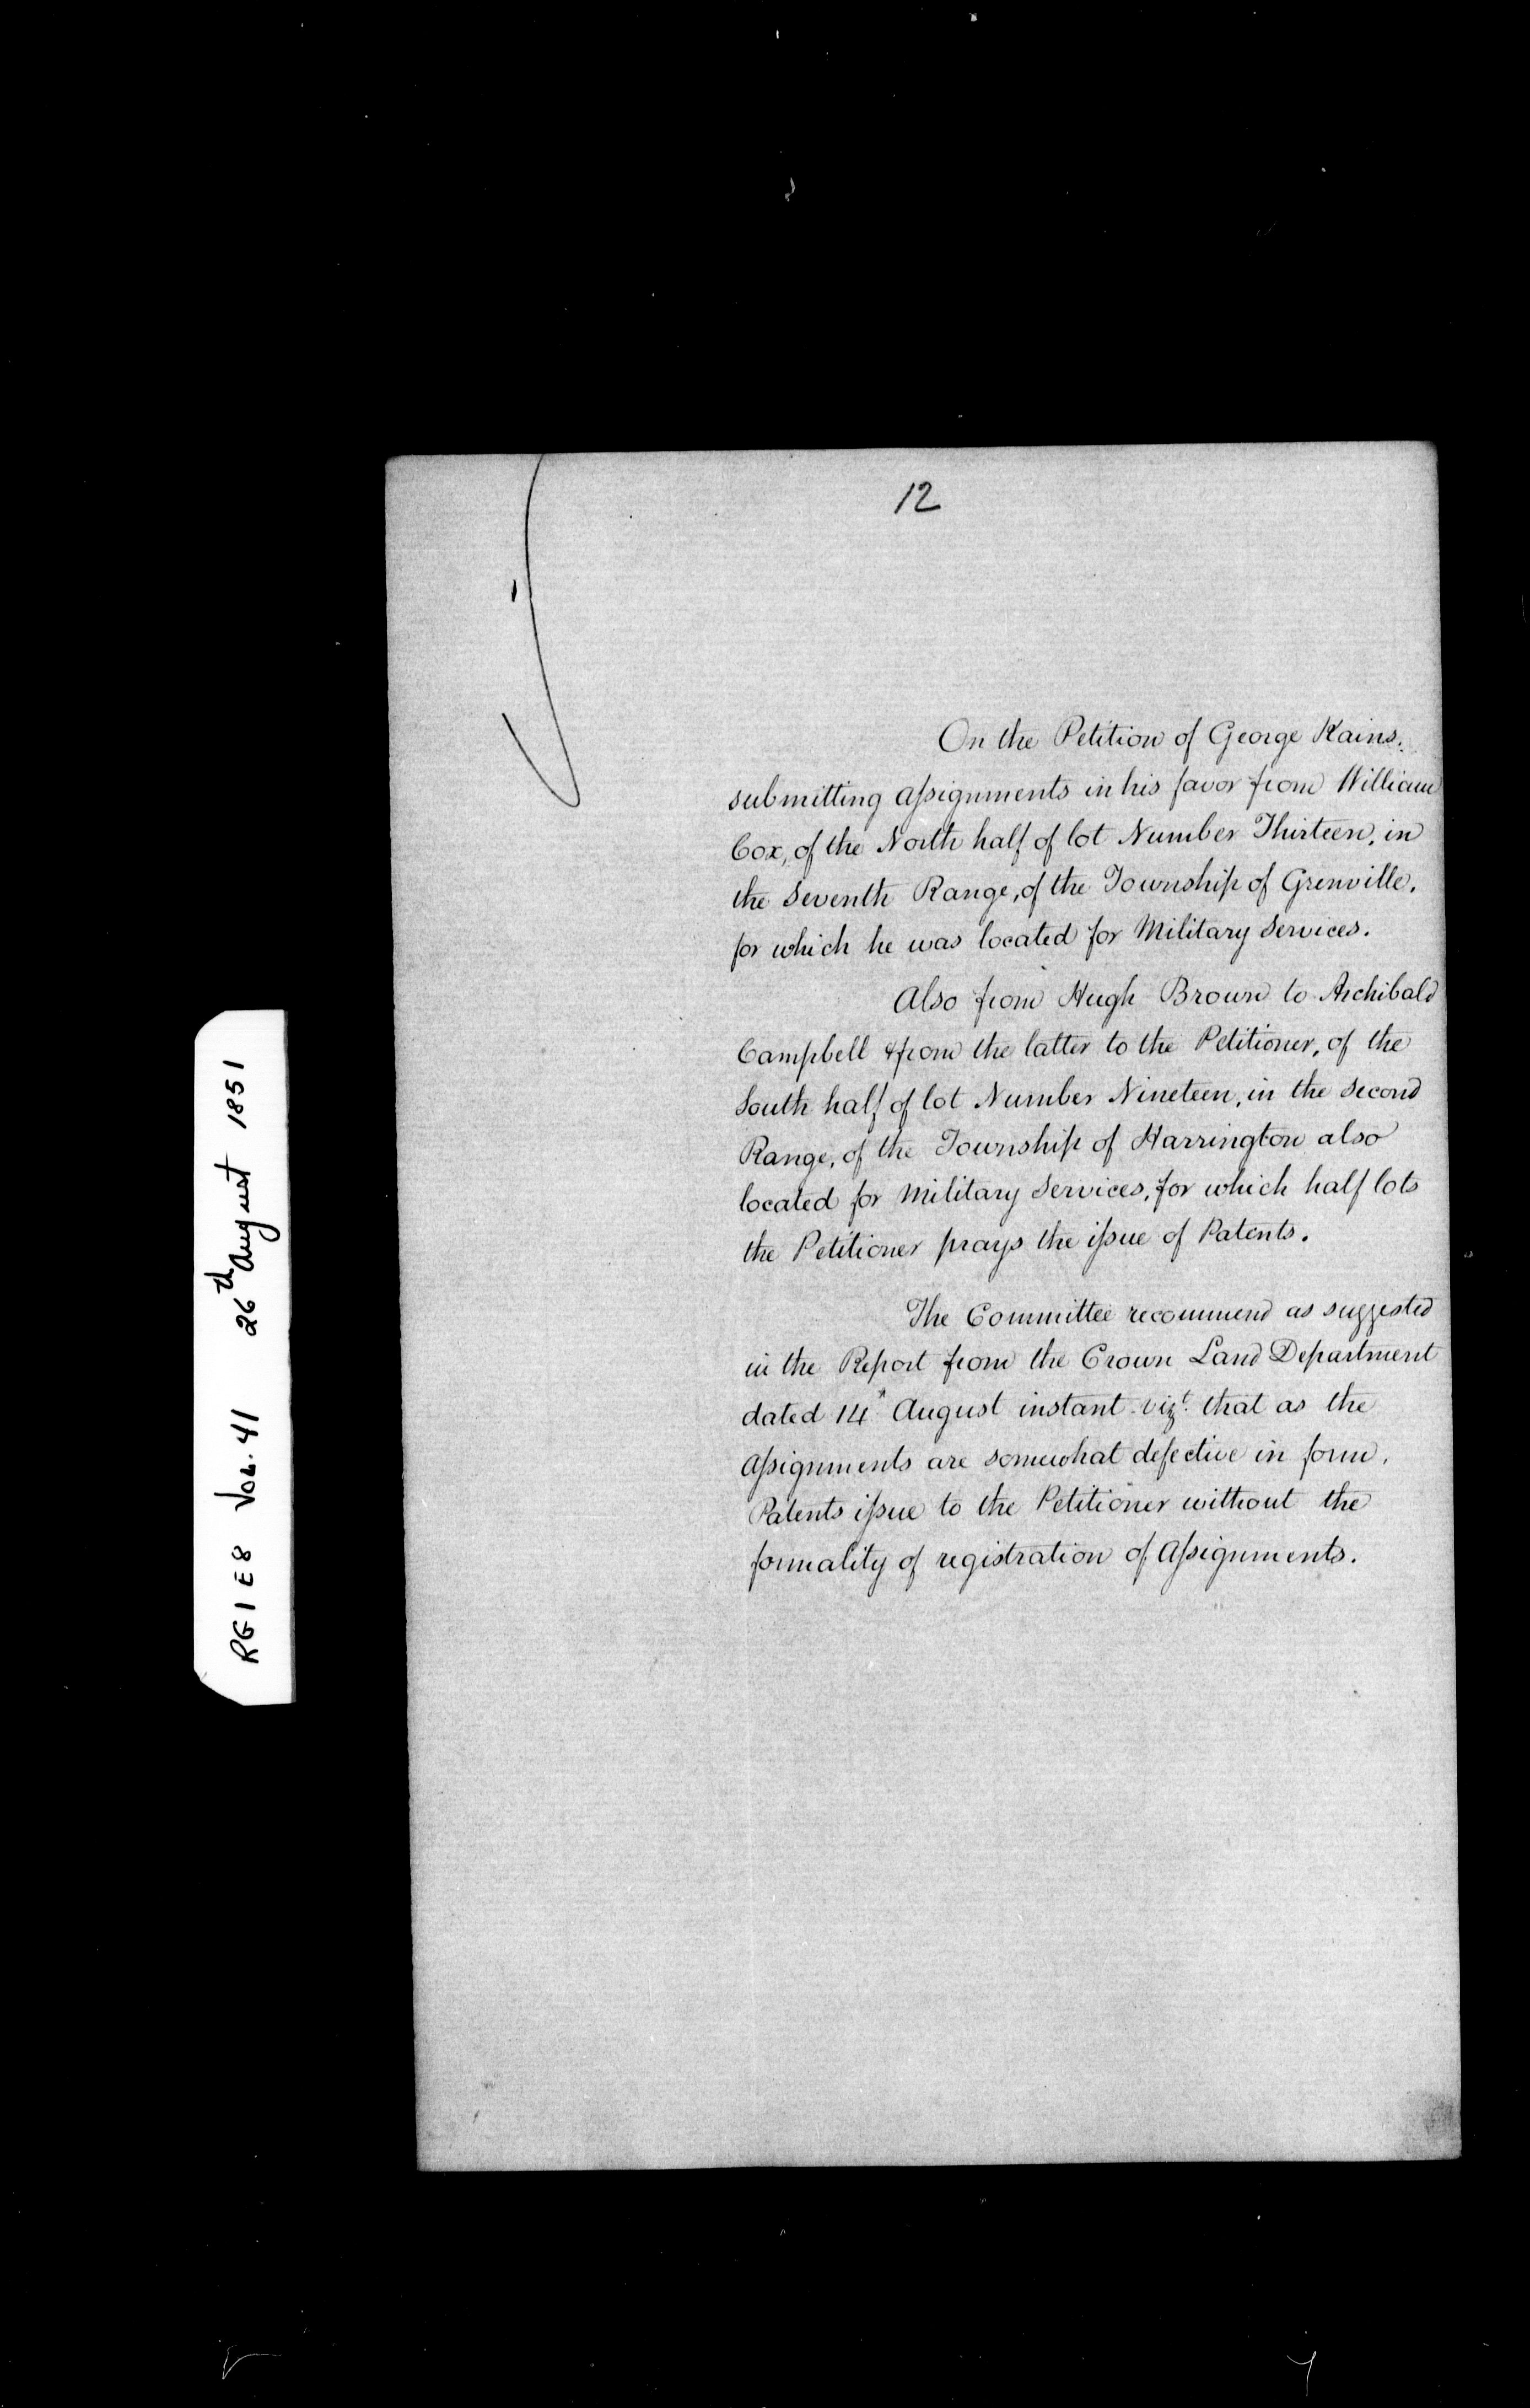 12
On the Petition of George Kains.
submitting assignments in his favor from William
Cox, of the North half of lot Number Thirteen, in
the Seventh Range, of the Township of Grenville,
for which he was located for Military Services.
Also from Hugh Brown to Archibald
Campbell & from the latter to the Petitioner, of the
South half of lot Number Nineteen, in the Second
Range, of the Township of Harrington also
located for Military Services, for which half lots
the Petitioner prays the issue of Patents.
The Committee recommend as suggested
in the Report from the Crown Land Department
dated 14th August instant vizt. that as the
Assignments are somewhat defective in form,
Patents issue to the Petitioner without the
formality of registration of Assignments.
RG1 E8 Vol. 41 26th August 1851